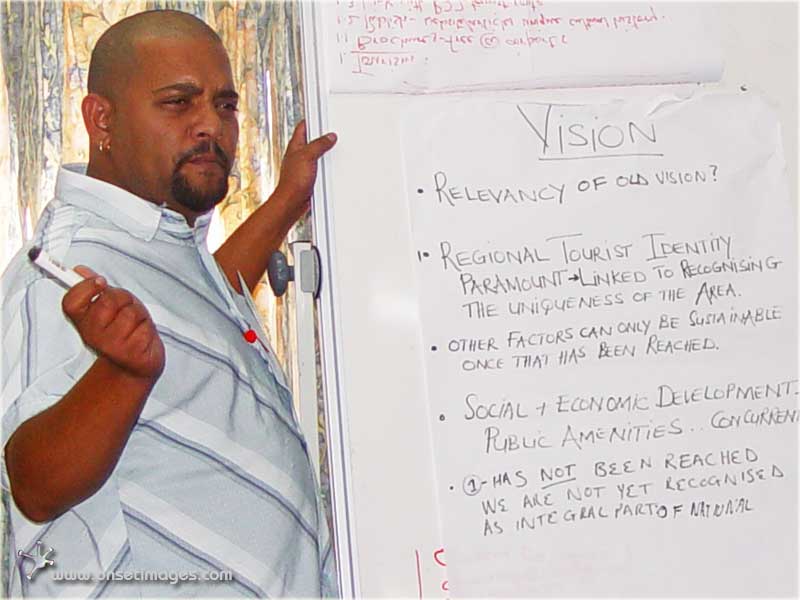 1. Tourism
1.1 Brochures-free @ airports
VISION
• RELEVANCY OF OLD VISION?
1• REGIONAL TOURIST IDENTITY
PARAMOUNT → LINKED TO RECOGNISING
THE UNIQUENESS OF THE AREA.
• OTHER FACTORS CAN ONLY BE SUSTAINABLE
ONCE THAT HAS BEEN REACHED.
• SOCIAL + ECONOMIC DEVELOPMENT.
PUBLIC AMENITIES.. CONCURRENT
• ①- HAS NOT BEEN REACHED
WE ARE NOT YET RECOGNISED
AS INTEGRAL PART OF NATIONAL
www.onsetimages.com